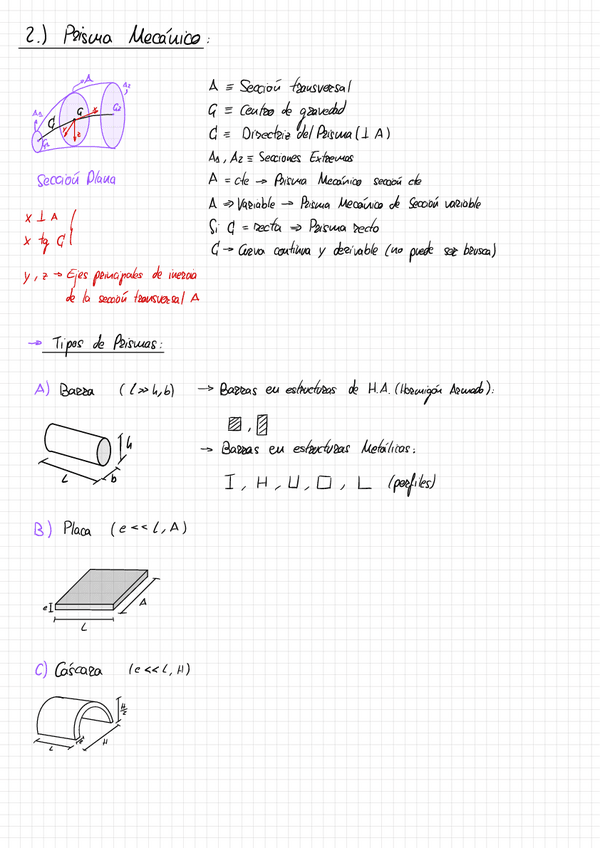 2.) Prisma Mecánico:
A ≡ Sección transversal
G ≡ Centro de gravedad
C ≡ Directriz del Prisma (⊥ A)
A1, A2 ≡ Secciones Extremas
A = cte → Prisma Mecánico sección cte
A ⇒ Variable → Prisma Mecánico de Sección variable
Si C = recta ⇒ Prisma recto
C → Curva continua y derivable (no puede ser brusca)
A
A2
A1
G
G2
C
G1
x
y
z
Sección Plana
x ⊥ A
x tg C
y, z → Ejes principales de inercia
de la sección transversal A
→ Tipos de Prismas:
A) Barra (l >> h, b) → Barras en estructuras de H.A. (Hormigón Armado):
,
→ Barras en estructuras Metálicas:
I, H, U, □, L (perfiles)
h
L
b
B) Placa (e << l, A)
e
A
L
C) Cáscara (e << L, H)
H/2
L
e
H